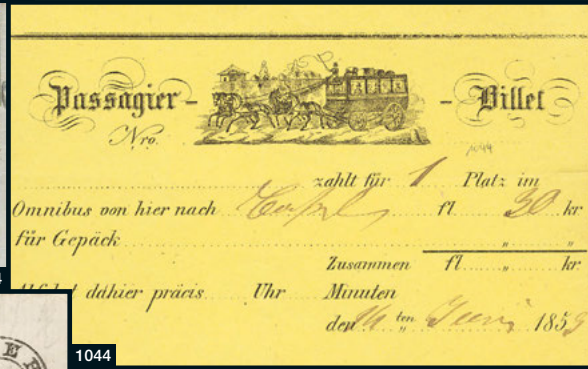 Passagier - - Billet
Nro.
1044
zahlt für 1 Platz im
Omnibus von hier nach fl 30 kr
für Gepäck " "
Zusammen fl " kr
dahier präcis Uhr Minuten
den ten Juni 1859
1044